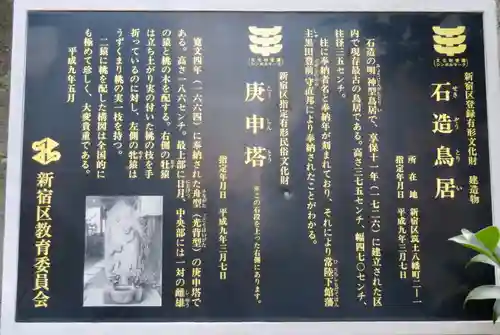 新宿区登録有形文化財　建造物
石造鳥居
せきぞうとりい
所在地　新宿区筑土八幡町二―一
指定年月日　平成九年三月七日
石造の明神型鳥居で、享保十一年（一七二六）に建立された区
内で現存最古の鳥居である。高さ三七五センチ、幅四七〇センチ、
柱径三五センチ。
柱に奉納者名と奉納年が刻まれており、それにより常陸下館藩
主黒田豊前守直邦により奉納されたことがわかる。
新宿区指定有形民俗文化財
庚申塔
こうしんとう
※この石段を上った右側にあります。
指定年月日　平成九年三月七日
寛文四年（一六六四）に奉納された舟型（光背型）の庚申塔で
ある。高さ一八六センチ。最上部に日月、中央部には一対の雌雄
の猿と桃の木を配する。右側の牡猿
は立ち上がり実の付いた桃の枝を手
折っているのに対し、左側の牝猿は
うずくまり桃の実一枝を持つ。
二猿に桃を配した構図は全国的に
も極めて珍しく、大変貴重である。
平成九年五月
新宿区教育委員会